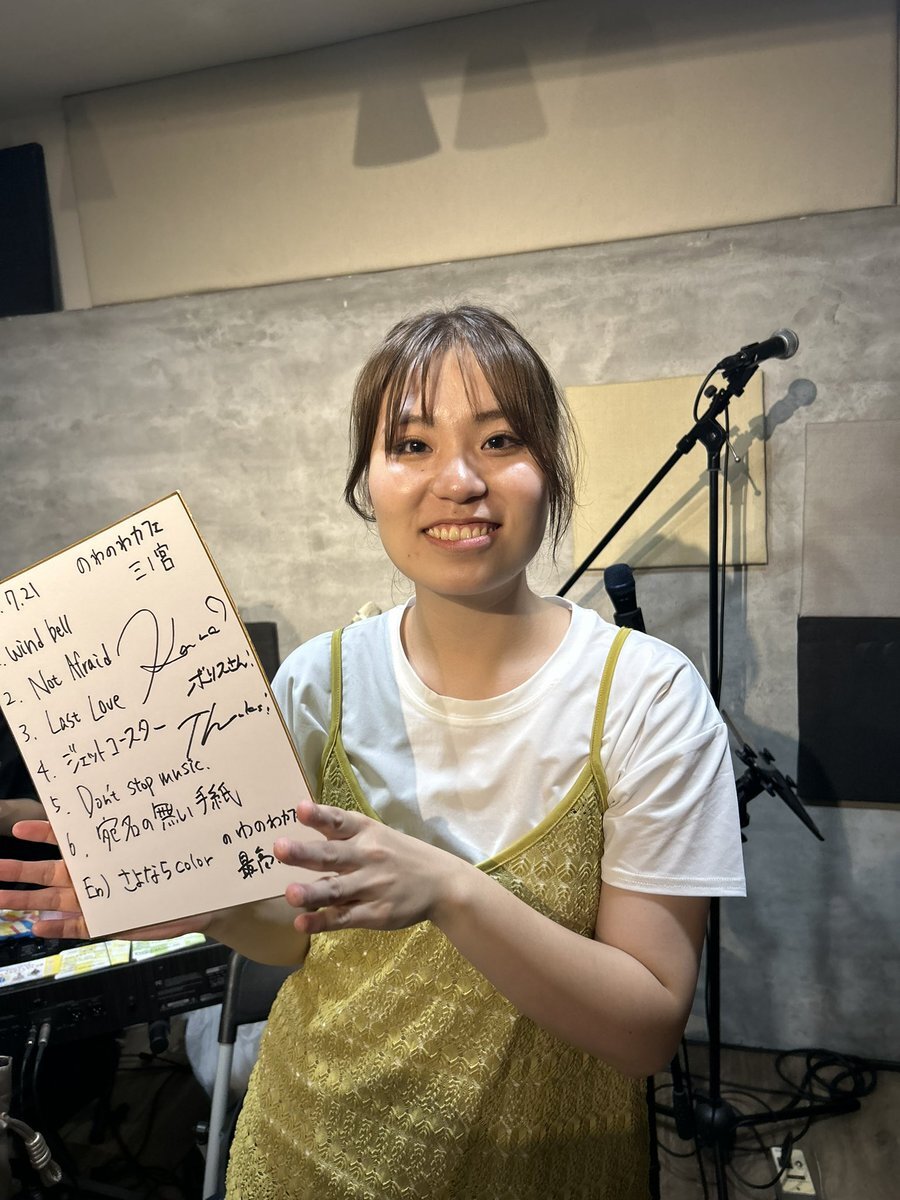 .7.21 のわのわカフェ
三ノ宮
. Wind bell
2. Not Afraid
3. Last Love
ボリスさん!
4. ジェットコースター
Thanks!
5. Don't stop music.
6. 宛名の無い手紙
En) さよなら color
のわのわカフ
最高